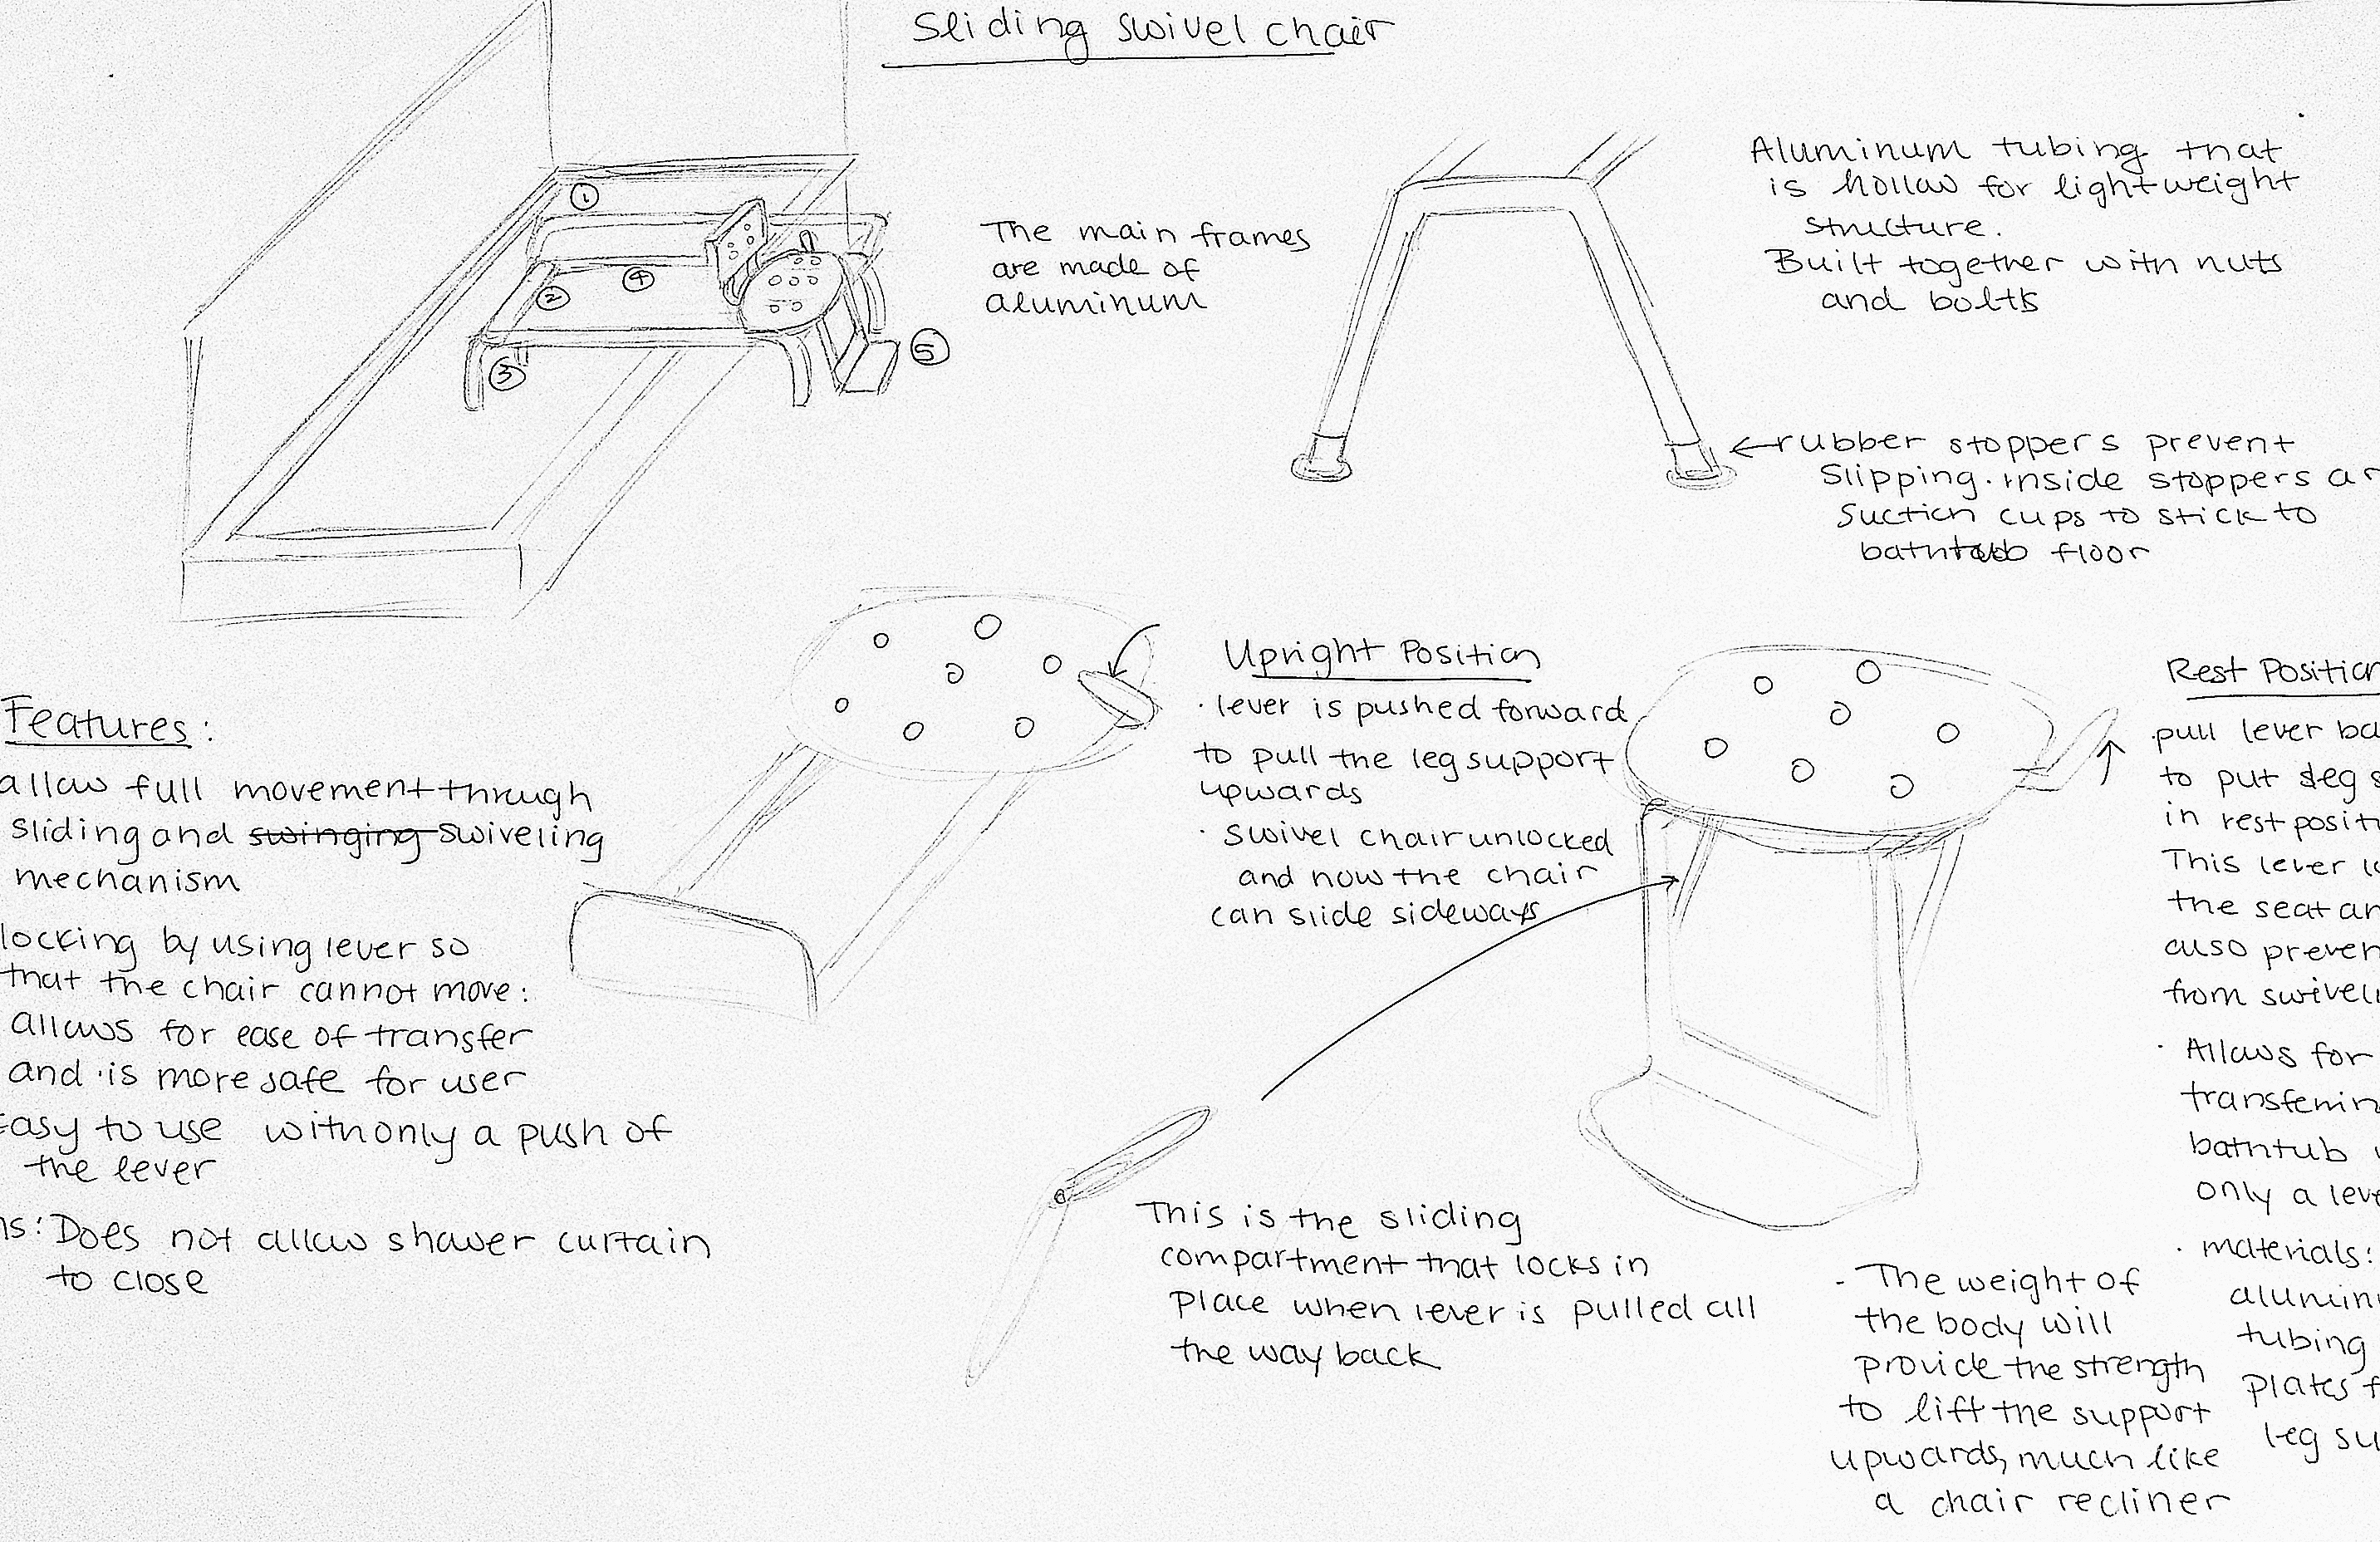 Sliding swivel chair
1
2
3
4
5
The main frames
are made of
aluminum
Aluminum tubing that
is hollow for lightweight
structure.
Built together with nuts
and bolts
←rubber stoppers prevent
slipping. inside stoppers ar
suction cups to stick to
bathtub floor
Features:
allow full movement through
sliding and swinging swiveling
mechanism
locking by using lever so
that the chair cannot move:
allows for ease of transfer
and is more safe for user
Easy to use with only a push of
the lever
ns: Does not allow shower curtain
to close
Upright Position
· lever is pushed forward
to pull the leg support
upwards
· swivel chair unlocked
and now the chair
can slide sideways
This is the sliding
compartment that locks in
place when lever is pulled all
the way back
Rest Position
· pull lever ba
to put leg s
in rest positi
This lever lo
the seat an
also preven
from swiveli
· Allows for
transferrin
bathtub
only a leve
· materials:
alumin
tubing
plates f
leg su
- The weight of
the body will
provide the strength
to lift the support
upwards, much like
a chair recliner